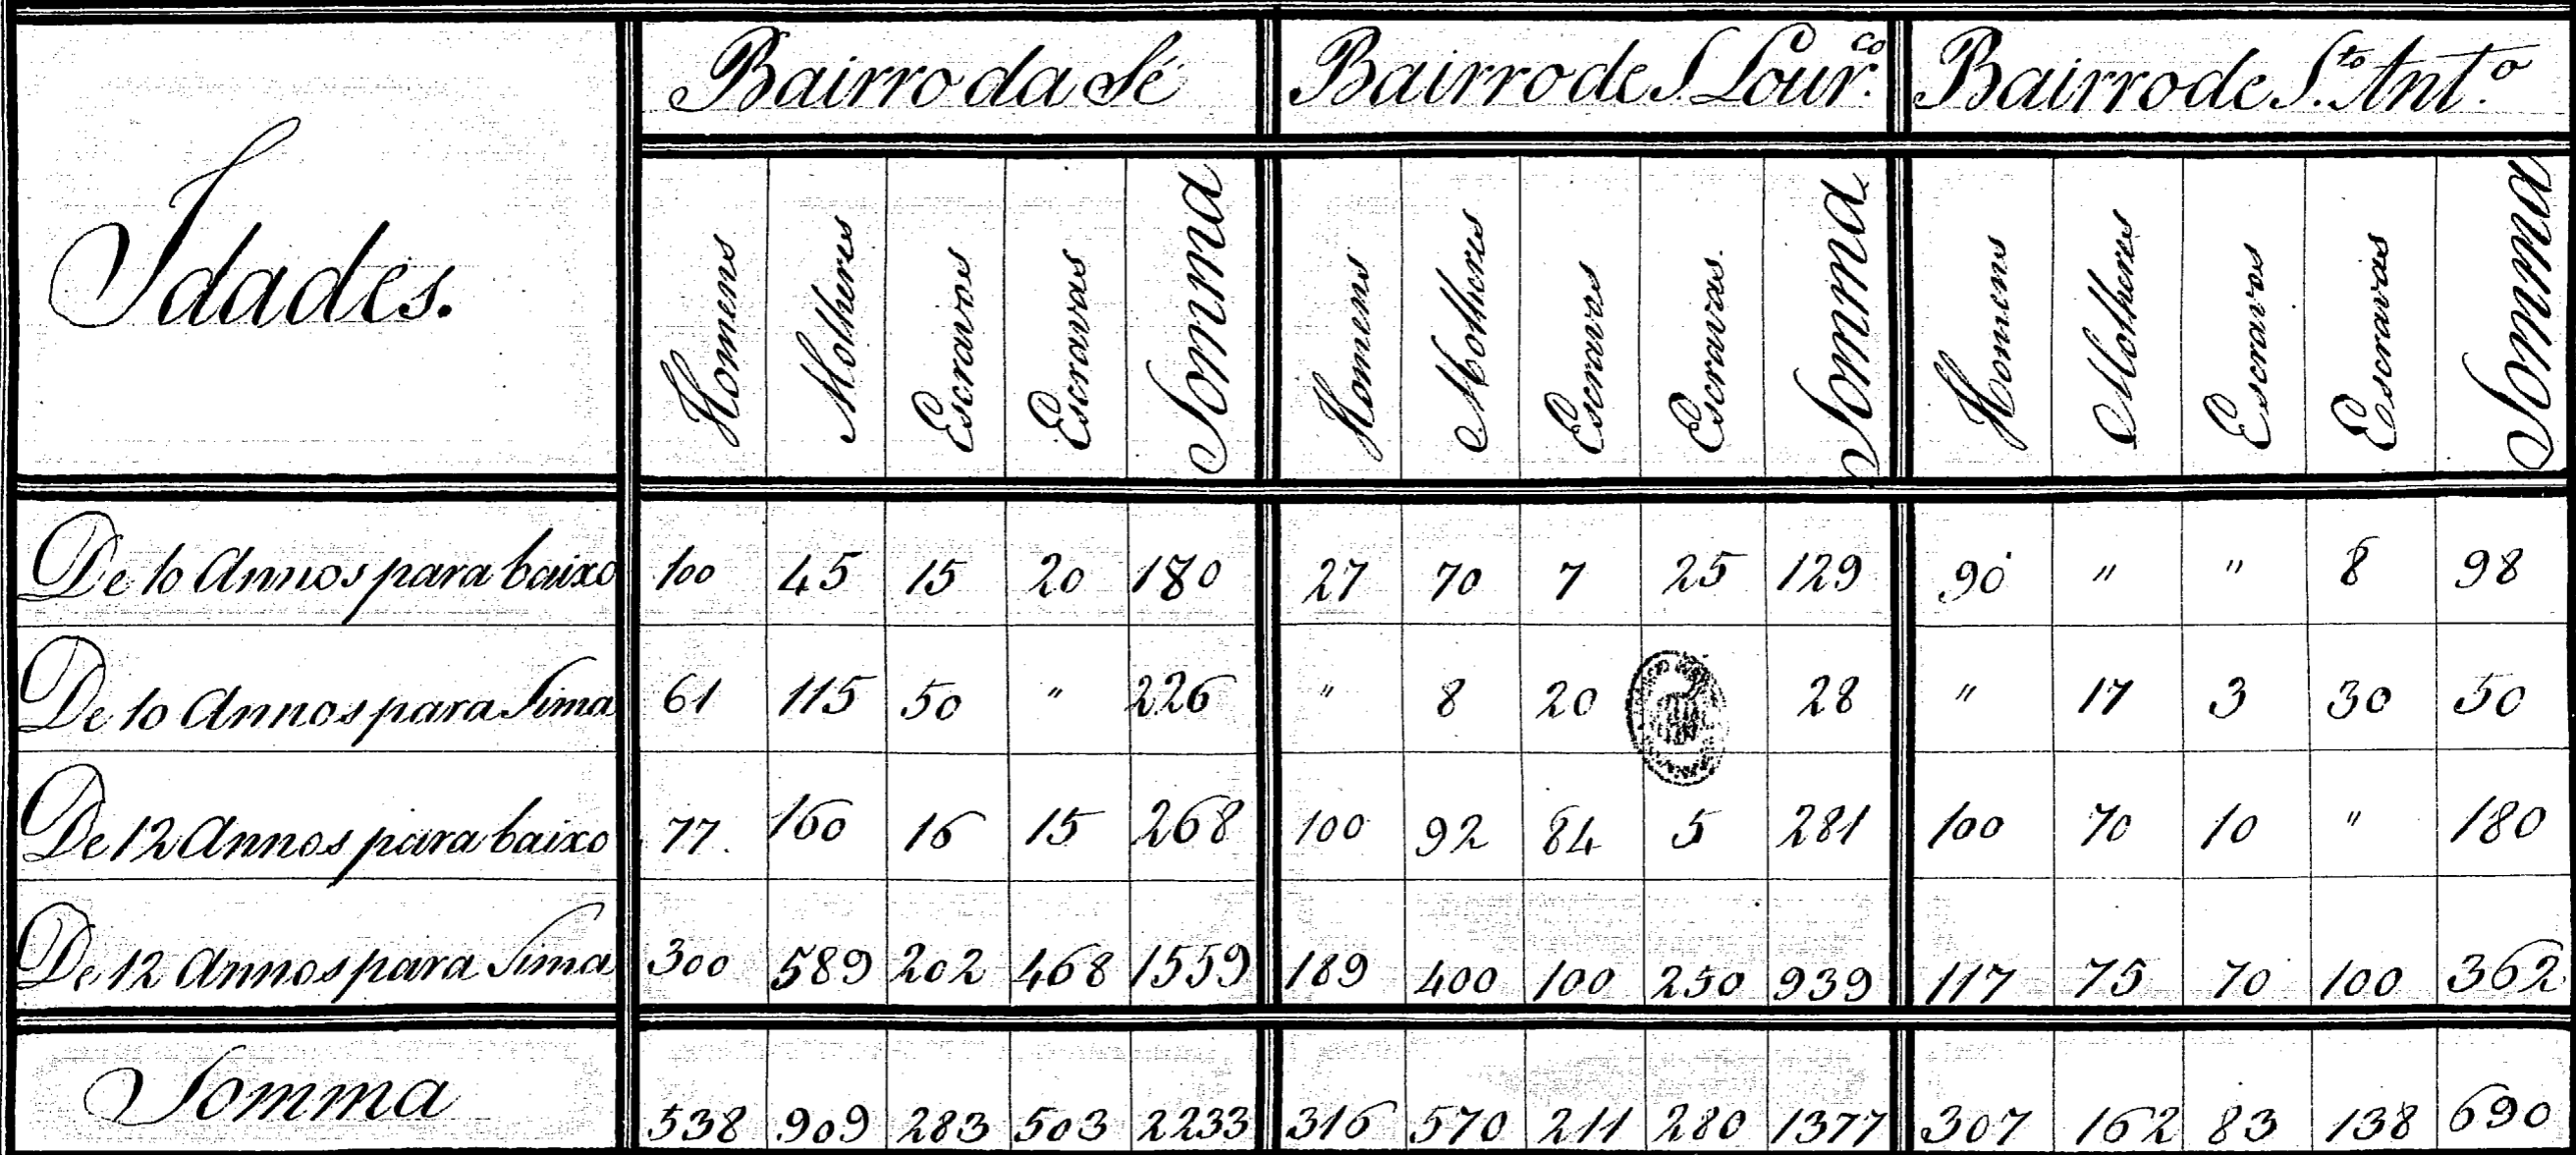 Idades. Bairro da Sé Bairro de S. Lour.co Bairro de S.to Ant.o
Homens Molheres Escravos Escravas Somma Homens Molheres Escravos Escravas. Somma Homens Molheres Escravos Escravas Somma
De 10 Annos para baixo 100 45 15 20 180 27 70 7 25 129 90 " " 8 98
De 10 Annos para Sima 61 115 50 " 226 " 8 20 28 " 17 3 30 50
De 12 Annos para baixo 77. 160 16 15 268 100 92 84 5 281 100 70 10 " 180
De 12 Annos para Sima 300 589 202 468 1559 189 400 100 250 939 117 75 70 100 362
Somma 538 909 283 503 2233 316 570 211 280 1377 307 162 83 138 690